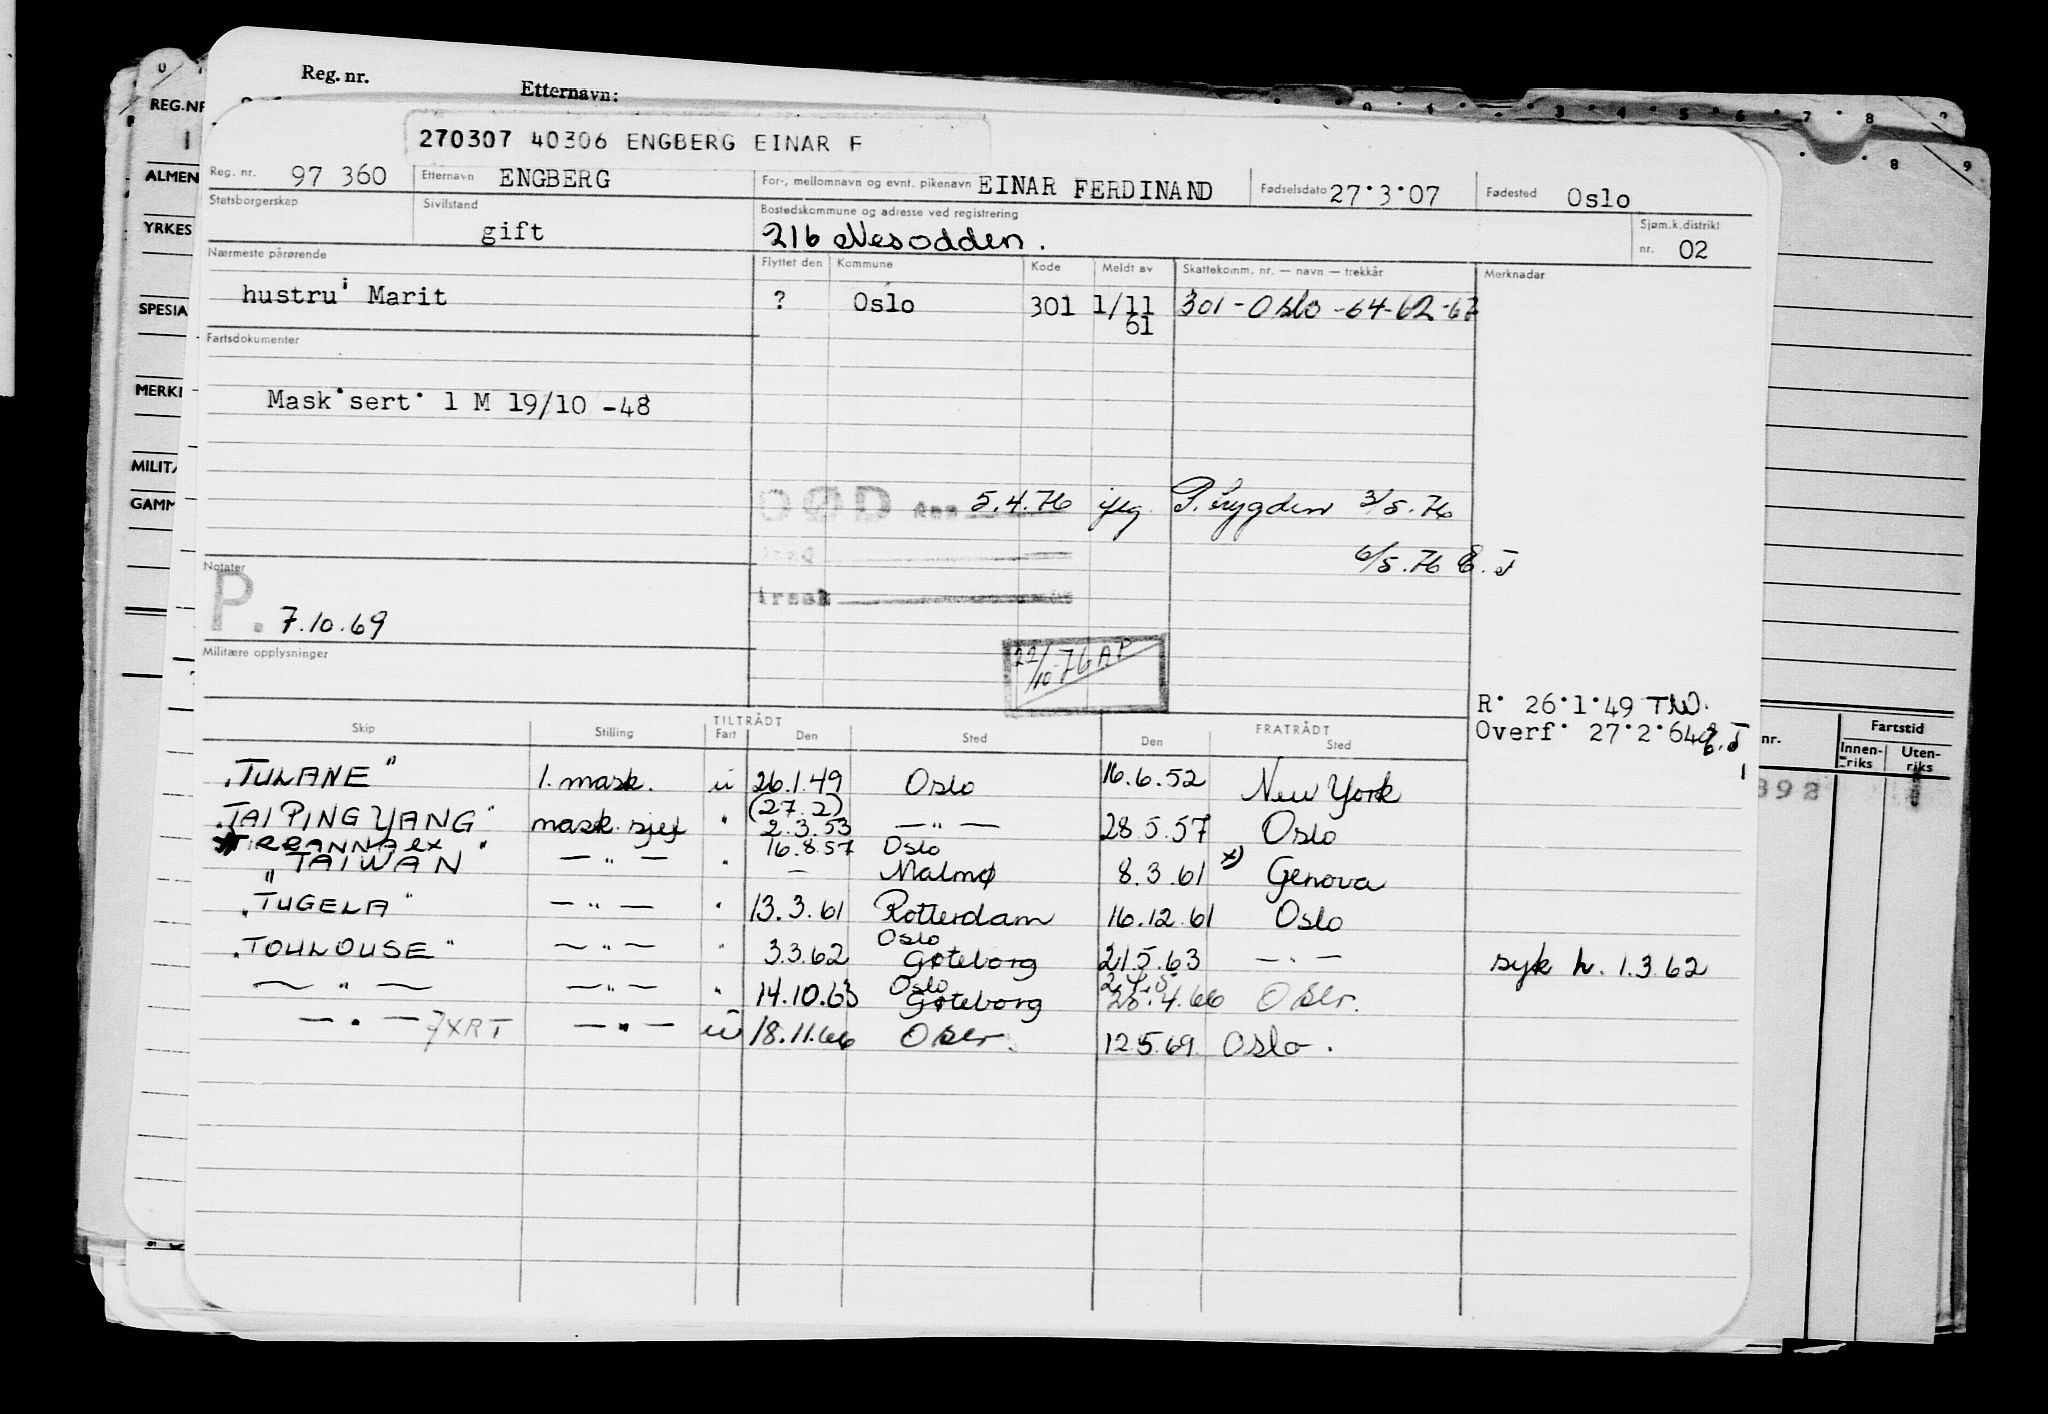 Reg. nr. Etternavn:
REG.NR
ALMEN
YRKES
SPESIA
MERKI
MILITÆ
GAMM
270307 40306 ENGBERG EINAR F
Reg. nr. 97 360 Etternavn ENGBERG For-, mellomnavn og evnt. pikenavn EINAR FERDINAND Fødselsdato 27.3.07 Fødested Oslo
Statsborgerskap Sivilstand gift Bostedskommune og adresse ved registrering 216 Nesodden. Sjøm.k.distrikt nr. 02
Nærmeste pårørende Flyttet den Kommune Kode Meldt av Skattekomm. nr. — navn — trekkår Merknader
hustru: Marit ? Oslo 301 1/11 61 301 - Oslo -64-62-67
Fartsdokumenter
Mask.sert. 1 M 19/10 -48
DØD den 5.4.76 iflg. P. trygden 3/5.76
6/5.76 E.J
Årsak
Notater
P. 7.10.69
22/10-76 AP
Militære opplysninger
R. 26.1.49 TW.
Overf. 27.2.64 E.J
Skip Stilling TILTRÅDT Fart Den Sted FRATRÅDT Den Sted
"TULANE" 1. mask. u 26.1.49 Oslo 16.6.52 New York
(27.2)
"TAI PING YANG" mask. sjef " 2.3.53 — " — 28.5.57 Oslo
TIRRANNA ex " 16.8.57 Oslo
"TAIWAN — " — " — Malmø 8.3.61 x) Genova
"TUGELA" — " — " 13.3.61 Rotterdam 16.12.61 Oslo
"TOULOUSE" — " — " 3.3.62 Oslo Gøteborg 21.5.63 — " — syk h. 1.3.62
— " — — " — " 14.10.63 Oslo Gøteborg 28.4.66 Oslo.
— " — 7XRT — " — u 18.11.66 Oslo. 12.5.69. Oslo.
nr. Fartstid
Innen-riks Uten-riks
392